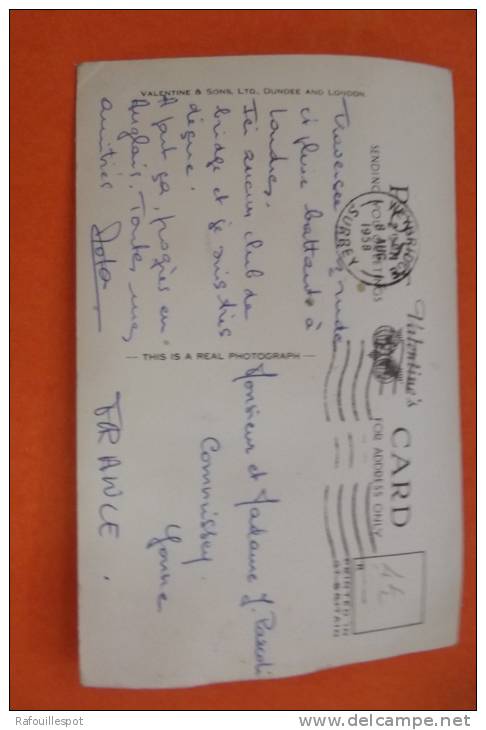 Valentine's CARD
SENDING YOU GREETINGS
FOR ADDRESS ONLY
SURREY
8 AUG
1958
PRINTED IN
GT. BRITAIN
44
VALENTINE & SONS, LTD., DUNDEE AND LONDON.
THIS IS A REAL PHOTOGRAPH
Traversée rude
et pluie battante à
Londres.
Ici aucun club de
bridge et je suis très
déçue.
A part ça, progrès en
Anglais. Toutes mes
amitiés
Monsieur et Madame J.
Commissey
Yonne
FRANCE.
Rafouillespot
www.delcampe.net